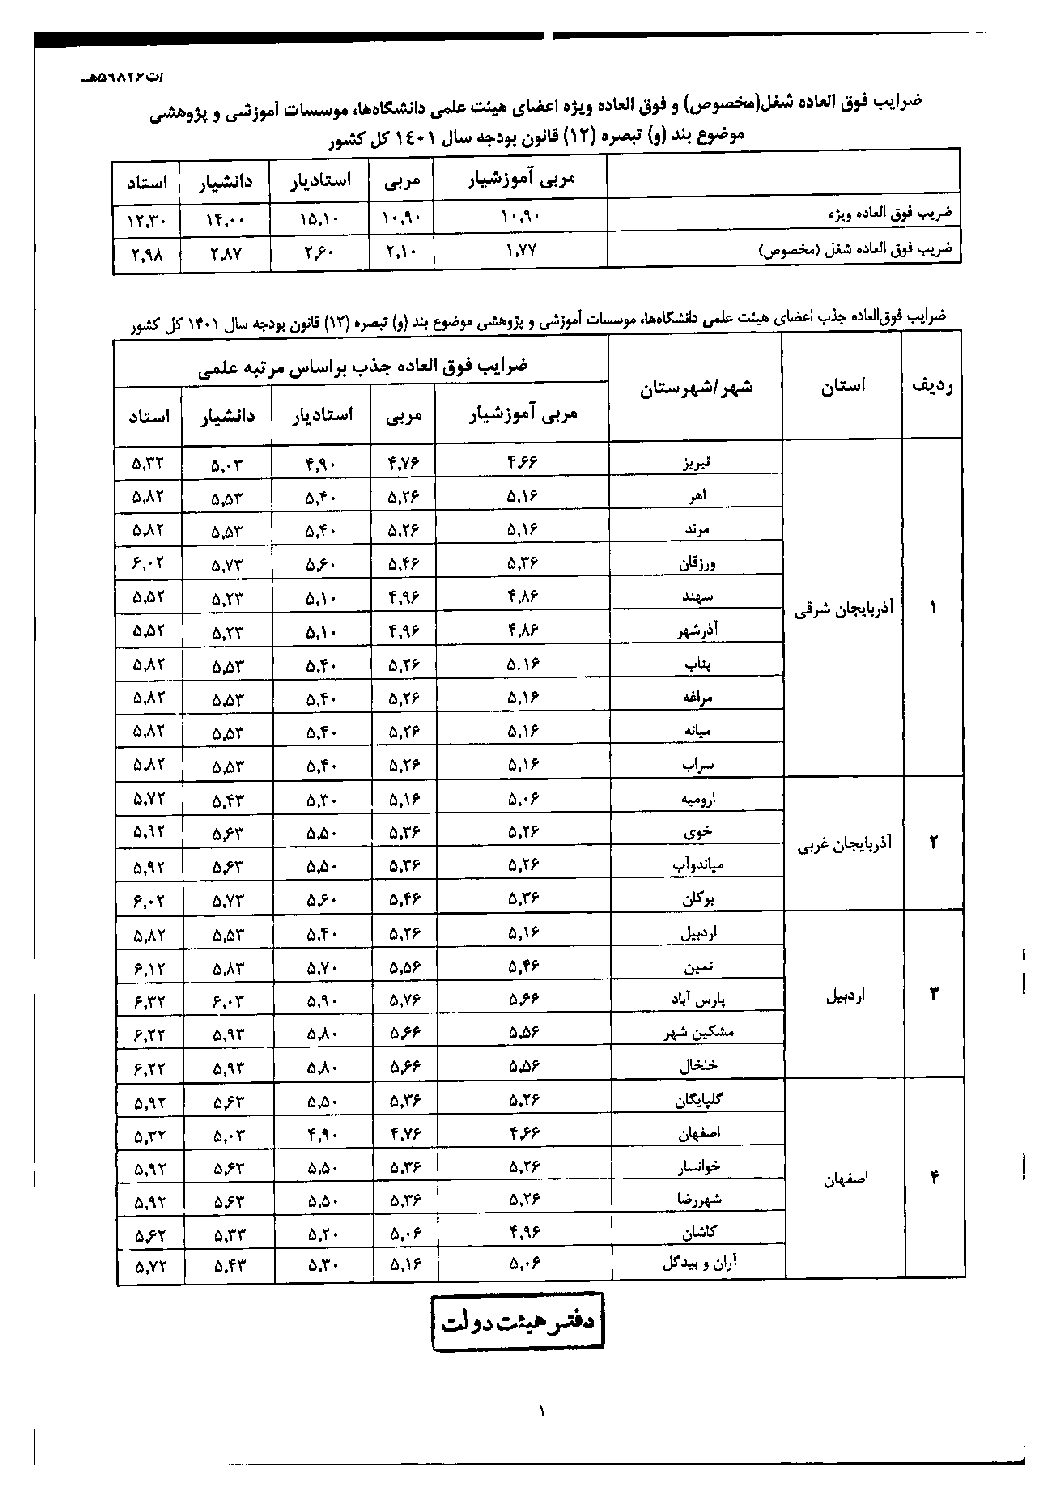 /ت۵۹۸۲۶هـ
ضرایب فوق العاده شغل(مخصوص) و فوق العاده ویژه اعضای هیئت علمی دانشگاه‌ها، موسسات آموزشی و پژوهشی
موضوع بند (و) تبصره (۱۲) قانون بودجه سال ۱۴۰۱ کل کشور
مربی آموزشیار مربی استادیار دانشیار استاد
ضریب فوق العاده ویژه ۱۰,۹۰ ۱۰,۹۰ ۱۵,۱۰ ۱۴,۰۰ ۱۲,۳۰
ضریب فوق العاده شغل (مخصوص) ۱,۷۷ ۲,۱۰ ۲,۶۰ ۲,۸۷ ۲,۹۸
ضرایب فوق‌العاده جذب اعضای هیئت علمی دانشگاه‌ها، موسسات آموزشی و پژوهشی موضوع بند (و) تبصره (۱۲) قانون بودجه سال ۱۴۰۱ کل کشور
ردیف استان شهر/شهرستان ضرایب فوق العاده جذب براساس مرتبه علمی
مربی آموزشیار مربی استادیار دانشیار استاد
تبریز ۴,۶۶ ۴,۷۶ ۴,۹۰ ۵,۰۳ ۵,۳۲
اهر ۵,۱۶ ۵,۲۶ ۵,۴۰ ۵,۵۳ ۵,۸۲
مرند ۵,۱۶ ۵,۲۶ ۵,۴۰ ۵,۵۳ ۵,۸۲
ورزقان ۵,۳۶ ۵,۴۶ ۵,۶۰ ۵,۷۳ ۶,۰۲
سهند ۴,۸۶ ۴,۹۶ ۵,۱۰ ۵,۲۳ ۵,۵۲
۱ آذربایجان شرقی آذرشهر ۴,۸۶ ۴,۹۶ ۵,۱۰ ۵,۲۳ ۵,۵۲
بناب ۵,۱۶ ۵,۲۶ ۵,۴۰ ۵,۵۳ ۵,۸۲
مراغه ۵,۱۶ ۵,۲۶ ۵,۴۰ ۵,۵۳ ۵,۸۲
میانه ۵,۱۶ ۵,۲۶ ۵,۴۰ ۵,۵۳ ۵,۸۲
سراب ۵,۱۶ ۵,۲۶ ۵,۴۰ ۵,۵۳ ۵,۸۲
ارومیه ۵,۰۶ ۵,۱۶ ۵,۳۰ ۵,۴۳ ۵,۷۲
خوی ۵,۲۶ ۵,۳۶ ۵,۵۰ ۵,۶۳ ۵,۹۲
۲ آذربایجان غربی میاندوآب ۵,۲۶ ۵,۳۶ ۵,۵۰ ۵,۶۳ ۵,۹۲
بوکان ۵,۳۶ ۵,۴۶ ۵,۶۰ ۵,۷۳ ۶,۰۲
اردبیل ۵,۱۶ ۵,۲۶ ۵,۴۰ ۵,۵۳ ۵,۸۲
نمین ۵,۴۶ ۵,۵۶ ۵,۷۰ ۵,۸۳ ۶,۱۲
۳ اردبیل پارس آباد ۵,۶۶ ۵,۷۶ ۵,۹۰ ۶,۰۳ ۶,۳۲
مشکین شهر ۵,۵۶ ۵,۶۶ ۵,۸۰ ۵,۹۳ ۶,۲۲
خلخال ۵,۵۶ ۵,۶۶ ۵,۸۰ ۵,۹۳ ۶,۲۲
گلپایگان ۵,۲۶ ۵,۳۶ ۵,۵۰ ۵,۶۳ ۵,۹۲
اصفهان ۴,۶۶ ۴,۷۶ ۴,۹۰ ۵,۰۳ ۵,۳۲
۴ اصفهان خوانسار ۵,۲۶ ۵,۳۶ ۵,۵۰ ۵,۶۳ ۵,۹۲
شهررضا ۵,۲۶ ۵,۳۶ ۵,۵۰ ۵,۶۳ ۵,۹۲
کاشان ۴,۹۶ ۵,۰۶ ۵,۲۰ ۵,۳۳ ۵,۶۲
آران و بیدگل ۵,۰۶ ۵,۱۶ ۵,۳۰ ۵,۴۳ ۵,۷۲
دفتر هیئت دولت
۱